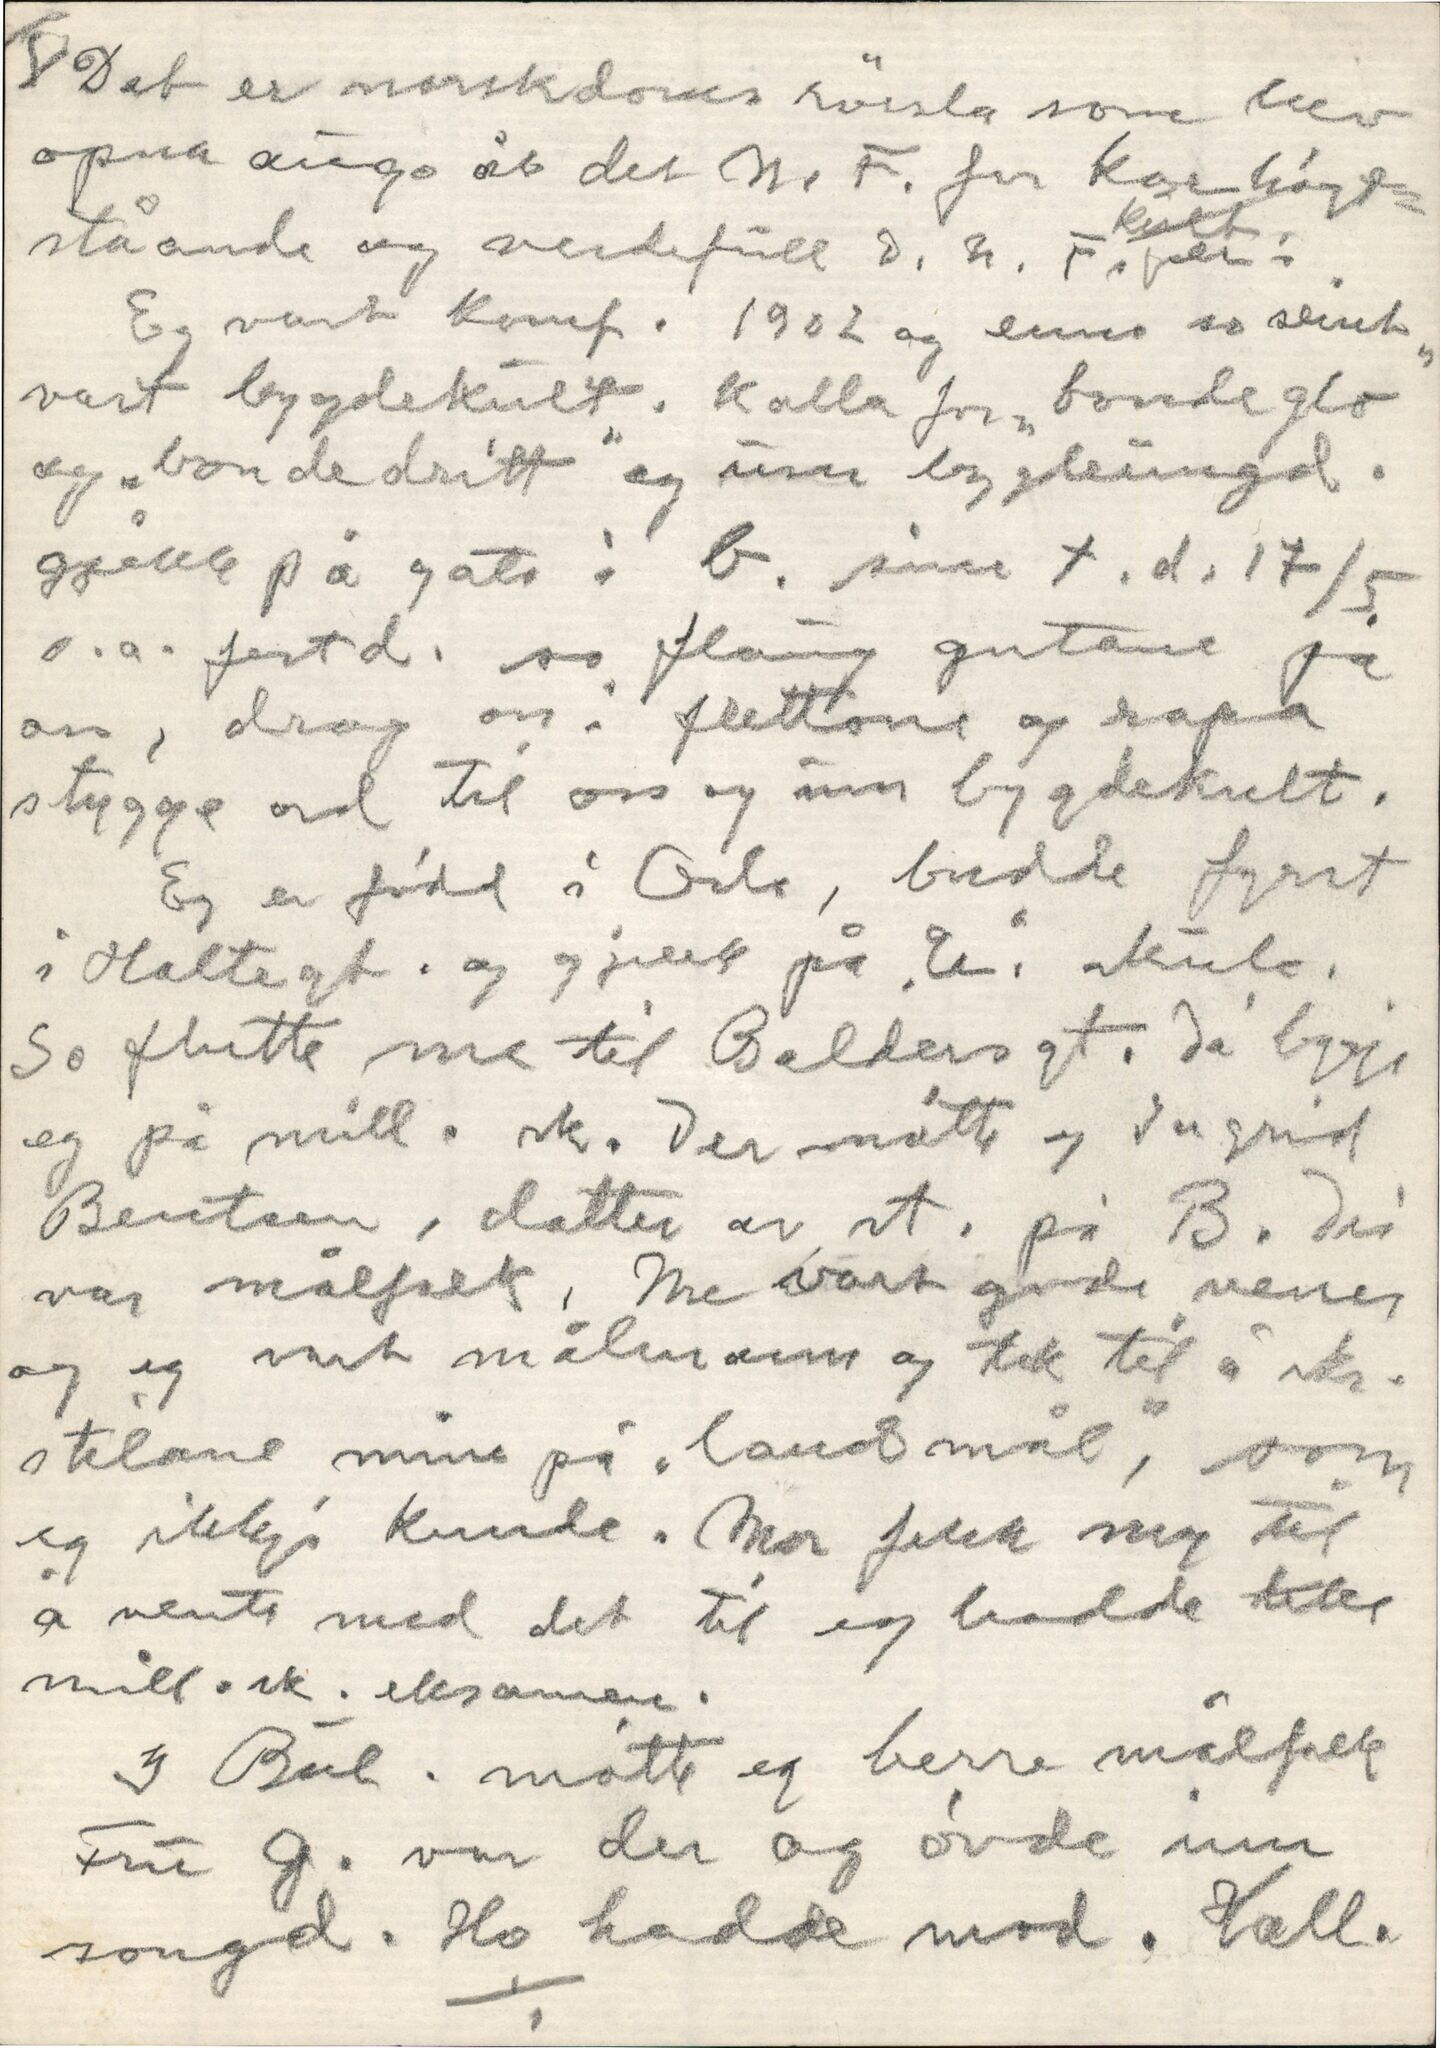 Det er norskdomsrörsla som hev
opna augo åt det N. F. for kor högt=
stående og verdefull d. N. F. kult. er.
Eg vart konf. 1902 og enno so seint
vart bygdekult. kalla for „bondeglo"
og „bondedritt" og um bygdeungd.
gjekk på gato i b. sine t. d. 17/5
o. a. festd. so flaug gutane på
oss, drog oss i flettone og ropa
stygge ord til oss og um bygdekult.
Eg er född i Oslo, budde fyrst
i Holtegt. og gjekk på U. skule.
So flutte me til Baldersgt. Då byrja
eg på mill. sk. Der mötte eg Ingrid
Bentsen, dotter av st. på B. Dei
var målfolk, Me vart gode vener
og eg vart målmann og tok til å skr.
stilane mine på „landsmål", som
eg ikkje kunde. Mor fekk meg til
å vente med det til eg hadde teke
mill. sk. eksamen.
I Bul. mötte eg berre målfolk
Fru G. var der og övde inn
songd. Ho hadde mod. Hall.